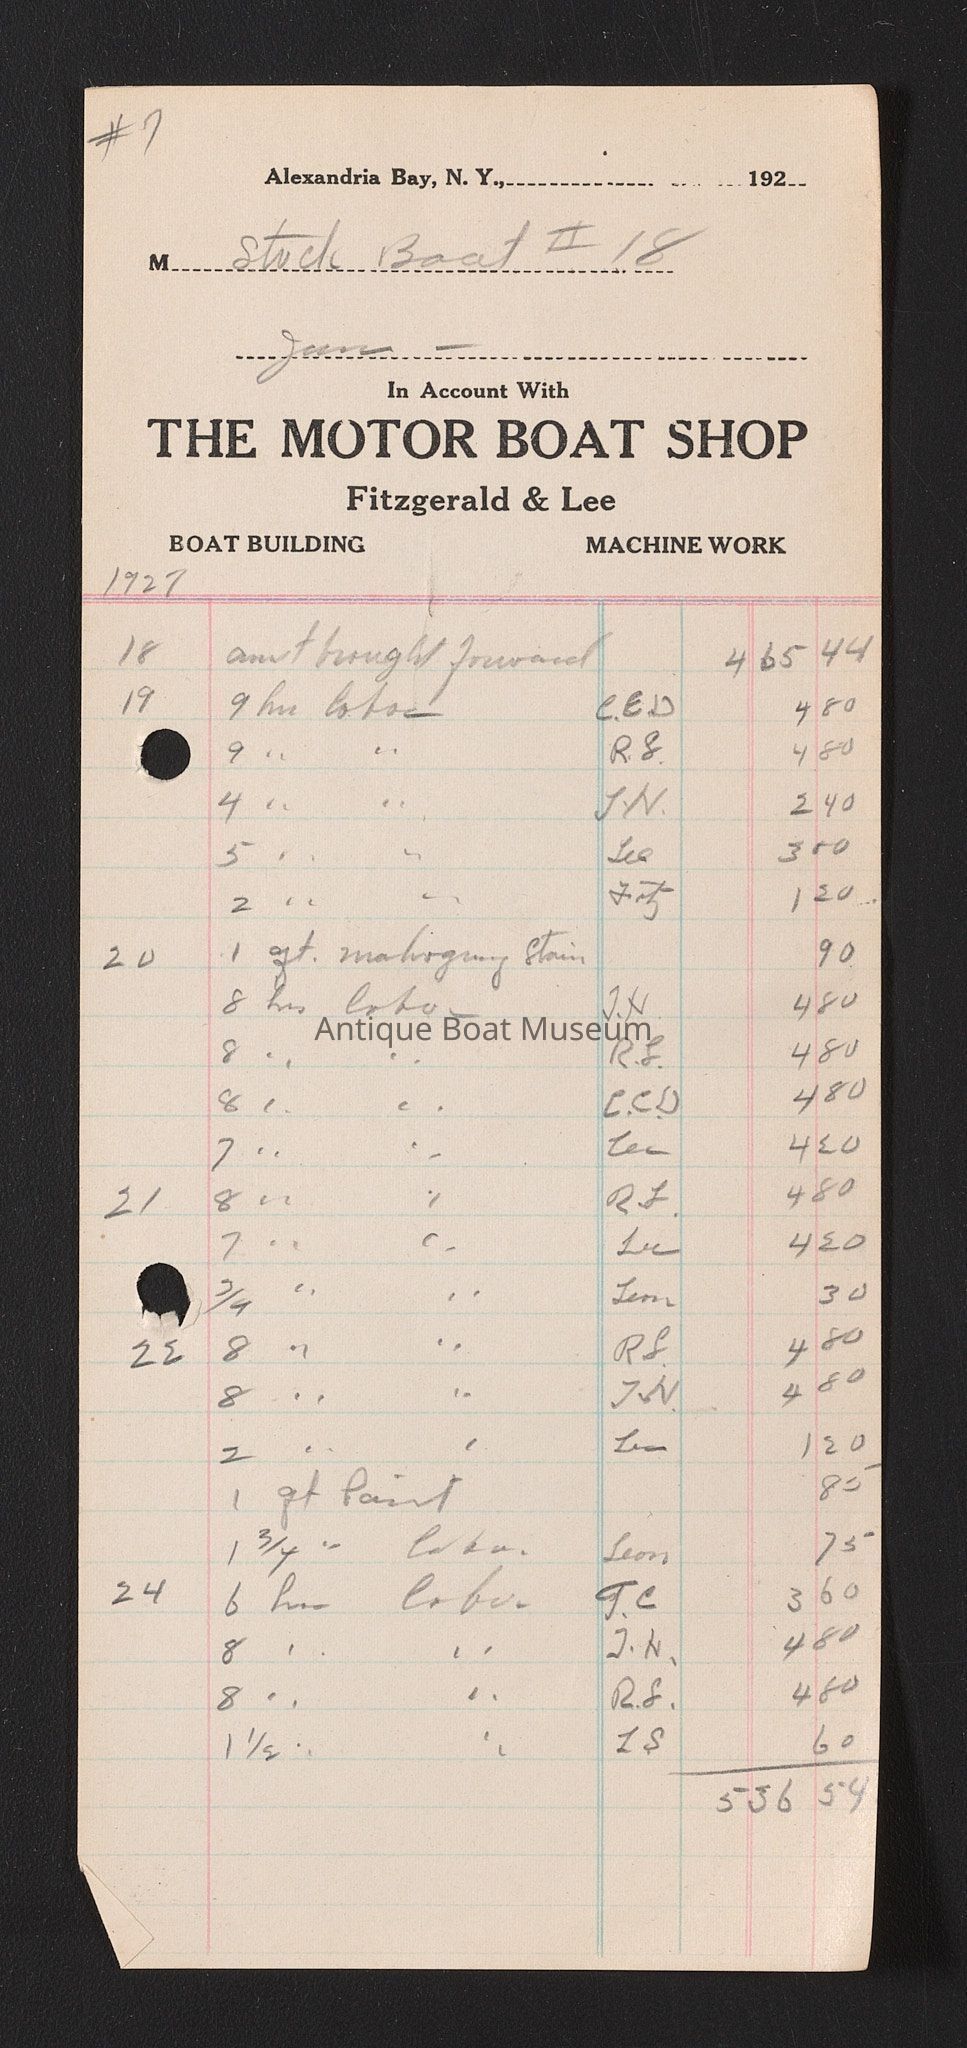 #7
Alexandria Bay, N. Y., 192
M Stock Boat # 18
Jan -
In Account With
THE MOTOR BOAT SHOP
Fitzgerald & Lee
BOAT BUILDING MACHINE WORK
1927
18 amt brought forward 465 44
19 9 hrs labor C.E.D 4 80
9 " " R.S. 4 80
4 " " J.N. 2 40
5 " " Lee 3 00
2 " " Fitz 1 20
20 1 qt. mahogany Stain 90
8 hrs labor J.N. 4 80
Antique Boat Museum
8 " " R.S. 4 80
8 " " C.C.D 4 80
7 " " Lee 4 20
21 8 " " R.S. 4 80
7 " " Lee 4 20
3/4 " " Leon 30
22 8 " " R.S. 4 80
8 " " J.N. 4 80
2 " " Lee 1 20
1 qt Paint 85
1 3/4 " labor Leon 75
24 6 hrs labor T.C 3 60
8 " " J.N. 4 80
8 " " R.S. 4 80
1 1/2 " " L S 60
536 54